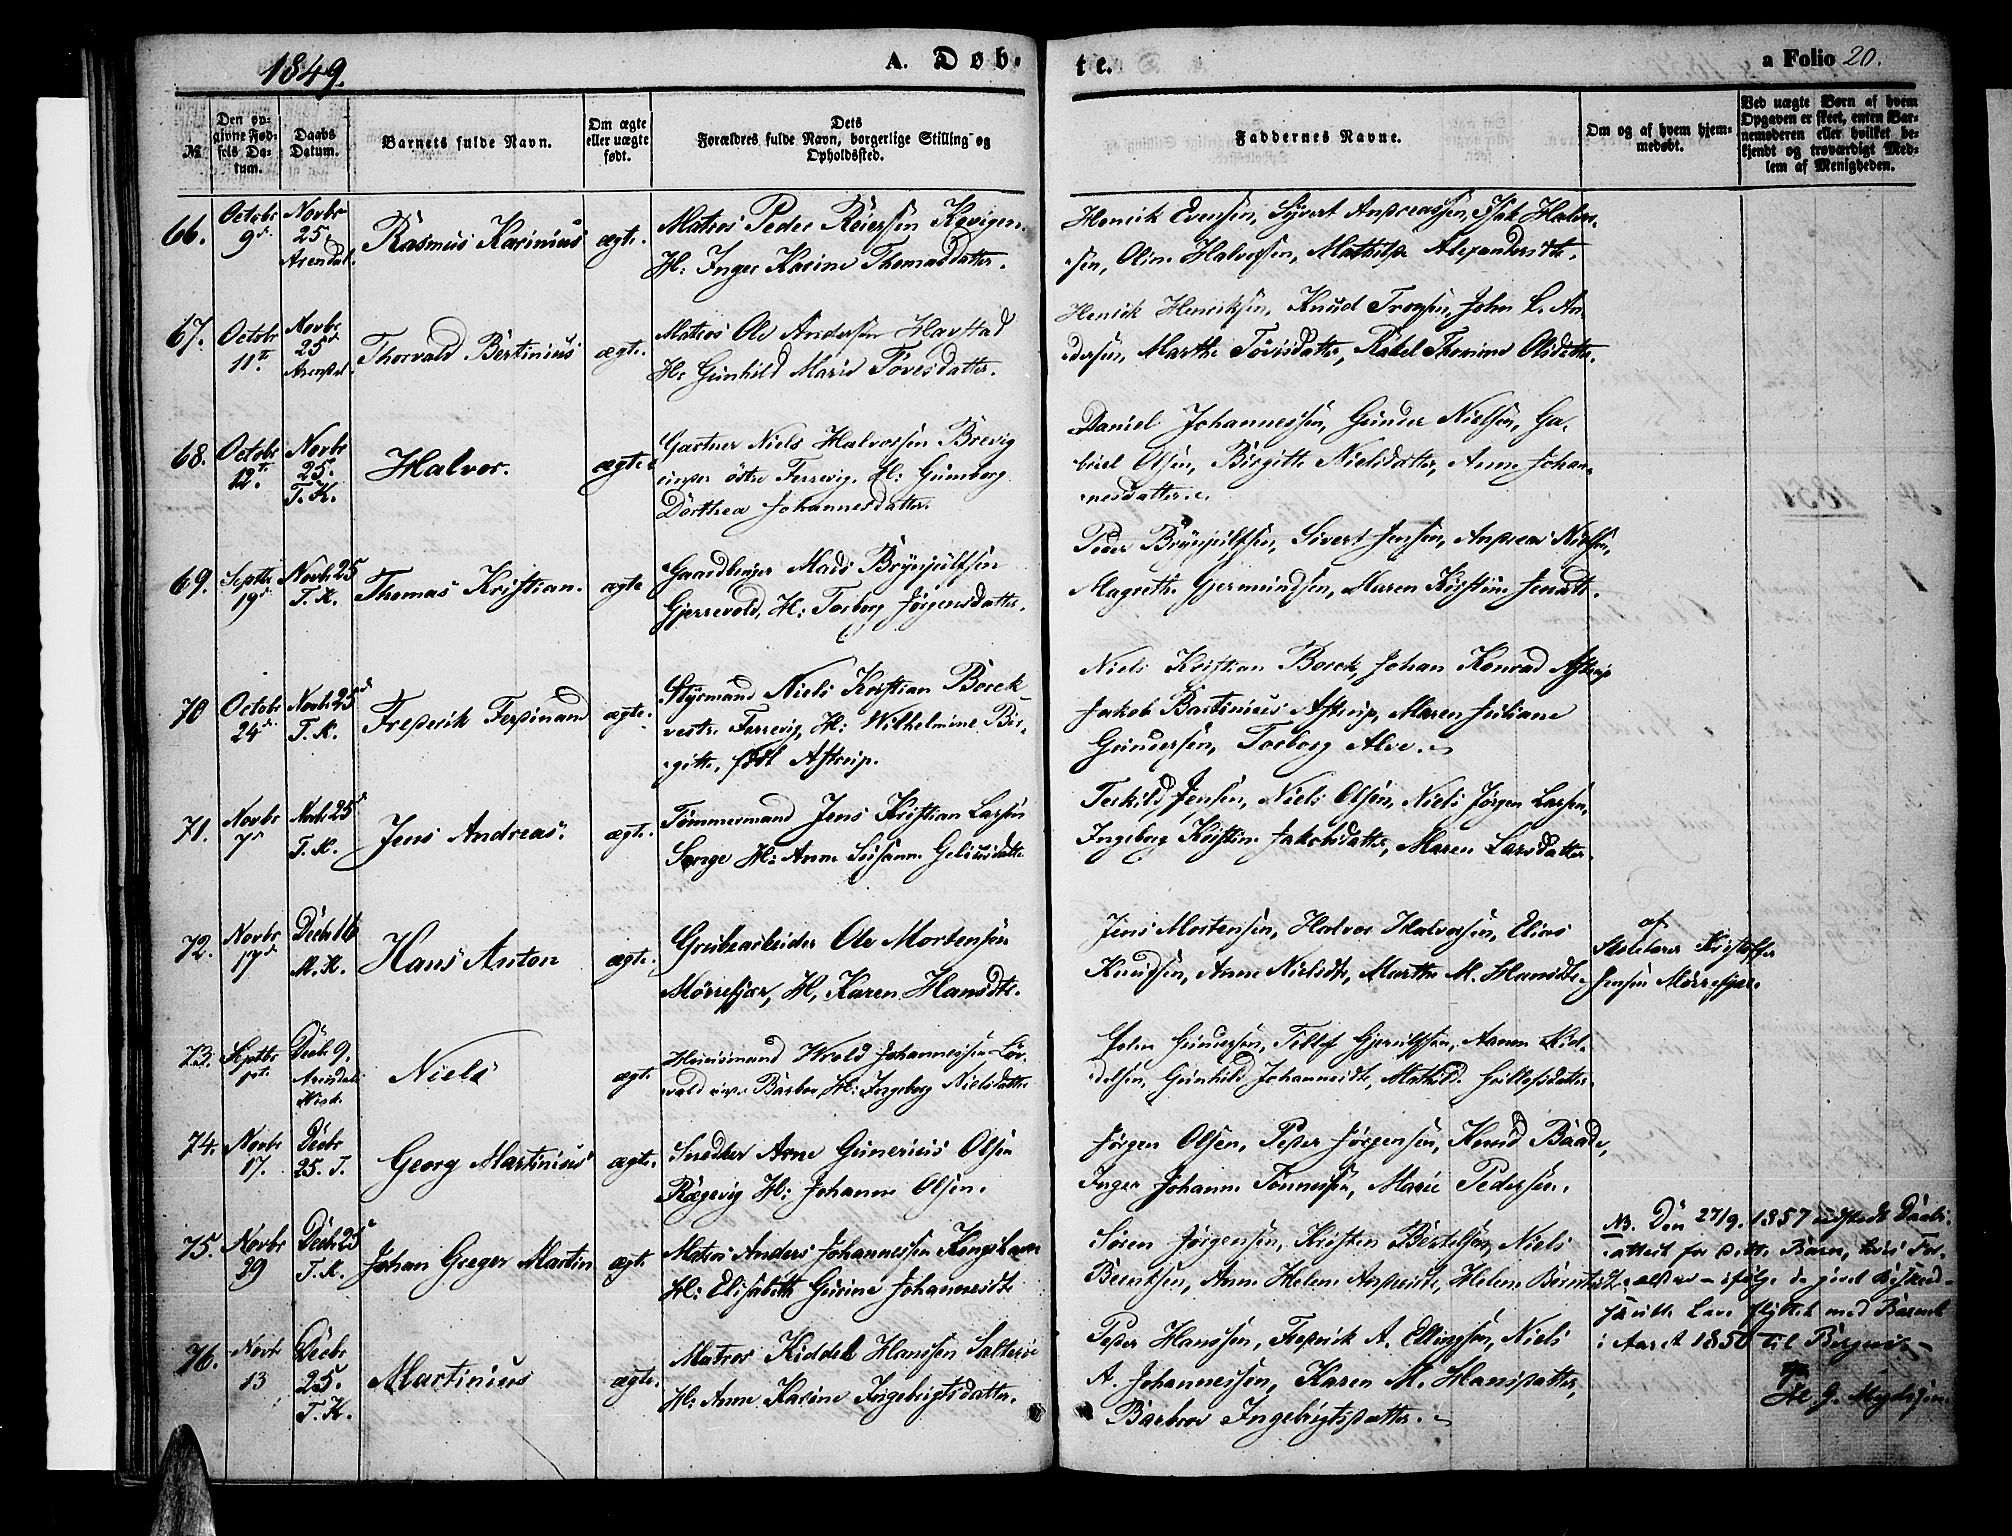 1849.
A. Døb-
te.
a Folio 20.
№
Den op-
givne Fød-
sels Da-
tum.
Daabs
Datum.
Barnets fulde Navn.
Om ægte
eller uægte
født.
Dets
Forældres fulde Navn, borgerlige Stilling og
Opholdssted.
Faddernes Navne.
Om og af hvem hjem-
medøbt.
Ved uægte Børn af hvem
Opgaven er skeet, enten Bar-
nemoderen eller hvilket be-
kjendt og troværdigt Med-
lem af Menigheden.
66.
Octobr
9de
Novbr
25.
Arendal.
Rasmus Karinius
ægte.
Matros Peder Reiersen Kavigen.
H: Inger Karine Thomasdatter.
Henrik Evensen, Syvert Andreassen, Isak Halvor-
sen, Oline Halvorsen, Mathilde Alexandersdtr.
67.
Octobr
11te
Novbr
25de
Arendal
Thorvald Bertinius
ægte.
Matros Ole Andersen Havstad
H: Gunhild Marie Tovesdatter.
Henrik Henriksen, Knud Troesen, John L. An-
dersen, Marthe Tovisdatter, Rakel Thorine Olsdatter.
68.
Octobr
12te
Novbr
25.
T. K.
Halvor.
ægte.
Gartner Niels Halvorsen Brevig
under østre Ferrevig. H: Gumborg
Dorthea Johannesdatter.
Daniel Johannessen, Gunder Nielsen, Ga-
briel Olsen, Birgitte Nielsdatter, Anne Johan-
nesdatter.
69.
Septbr
19de
Novbr 25
T. K.
Thomas Kristian.
ægte
Gaardbruger Mads Brynjulfsen
Gjerrevold, H: Torborg Jørgensdatter.
Peder Brynjulfsen, Sivert Jensen, Andreas Nielsen,
Magrethe Gjermundsen, Maren Kirstine Jensdtr.
70
Octobr
24de
Novbr 25de
T. K.
Frederik Ferdinand
ægte.
Styrmand Niels Kristian Borck
vestre Ferrevig, H: Wilhelmine Bir-
gitte, født Astrup.
Niels Kristian Borck, Johan Konrad Astrup
Jakob Bastinius Astrup, Maren Juliane
Gundersen, Torborg Alve.
71.
Novbr
7de
Novbr 25de
T. K.
Jens Andreas.
ægte.
Tømmermand Jens Kristian Larsen
Songe H: Anne Susanne Geliusdatter
Terkild Jensen, Niels Olsen, Niels Jørgen Larsen,
Ingeborg Kirstine Jakobsdatter, Maren Larsdatter.
72.
Novbr
17de
Decbr 16
M. K.
Hans Anton
ægte.
Grubearbeider Ole Mortensen
Mørrefjær, H, Karen Hansdtr.
Jens Mortensen, Halvor Halvorsen, Elias
Knudsen, Anne Nielsdtr, Marthe M. Hansdtr.
af
Skolelærer Kristoffer
Jensen Mørrefjær.
73.
Septbr
Decbr 9.
Arendals
Kirk.
Niels
ægte
Huusmand Wrold Johannessen Lør-
vold Barbo, H: Ingeborg Nielsdatter
John Gundersen, Tellef Gjeruldsen, Aanon
Gunhild Johannesdtr, Mathilde
74.
Novbr
17.
Decbr
25. T.
Georg Martinius
ægte.
Snedker Arne Gunerius Olsen
Rægevig H: Johanne Olsen.
Jørgen Olsen, Peder Jørgensen, Knud Baade,
Inger Johanne Tønnesen, Marie Pedersen.
75.
Novbr
29
Decbr 25de
T. K.
Johan Greger Martin
ægte
Matros Anders Johannessen Kongshavn
H: Elisabeth Gurine Johannesdtr
Søren Jørgensen, Kristen Bertelsen, Niels
Berntsen, Anne Helene Andersdtr, Helene Berntsdtr.
NB. Den 27/9. 1857 udstedt Daabs-
attest for dette Barn, hvis For-
ældre – ifølge de givet Bestand-
skulle have flyttet med Barnet
i Aaret 1850 til Bergen. –
76.
Novbr
13
Decbr
25.
T. K.
Martinius
ægte.
Matros Kiddel Hanssen Salterø
H: Anne Karine Ingebrigtsdatter.
Peder Hanssen, Frederik A. Ellingsen, Niels
A. Johannessen, Karen M. Hansdatter,
Barbroe Ingebrigtsdatter.